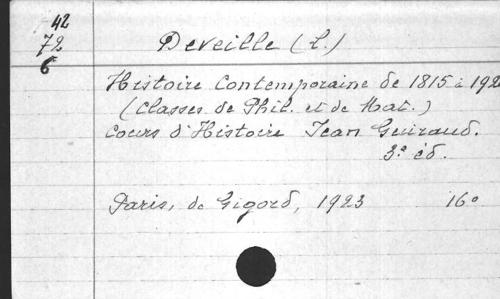 42
72
6
Deveille (L.)
Histoire Contemporaine de 1815 à 192
(Classes de Phil. et de Mat.)
Cours d'Histoire Jean Guiraud.
3e éd.
Paris, de Gigord, 1923 16o